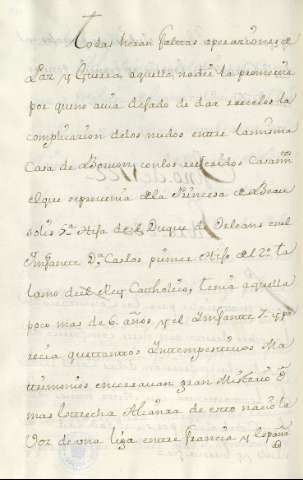 Todas heran falsas apreenciones de
Paz y Guerra, aquella nadie la promovia
por que no avia dejado de dar recelos la
complicacion de los nudos entre la misma
Casa de Borvon, con los referidos Casam.
el que se prevenia de la Princesa de Beau
jolis 5.ª Hija de el Duque de Orleans con el
Infante D.n Carlos primer Hijo del 2.º ta
lamo de el Rey Catholico, tenia aquella
poco mas de 6. años y el Infante 7. y pa
recia que tantos Intempestivos Ma
trimonios encerravan gran Misterio ó
mas estrecha Alianza de esto nacio la
Voz de una liga entre Francia y España